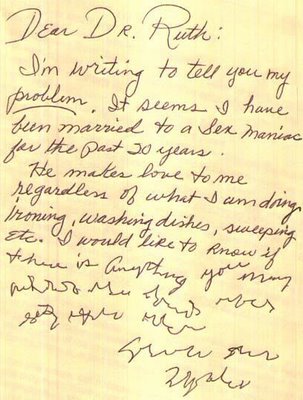 Dear Dr. Ruth:
I'm writing to tell you my
problem. It seems I have
been married to a Sex Maniac
for the past 20 years.
He makes love to me
regardless of what I am doing,
ironing, washing dishes, sweeping
etc. I would like to know if
there is anything you may